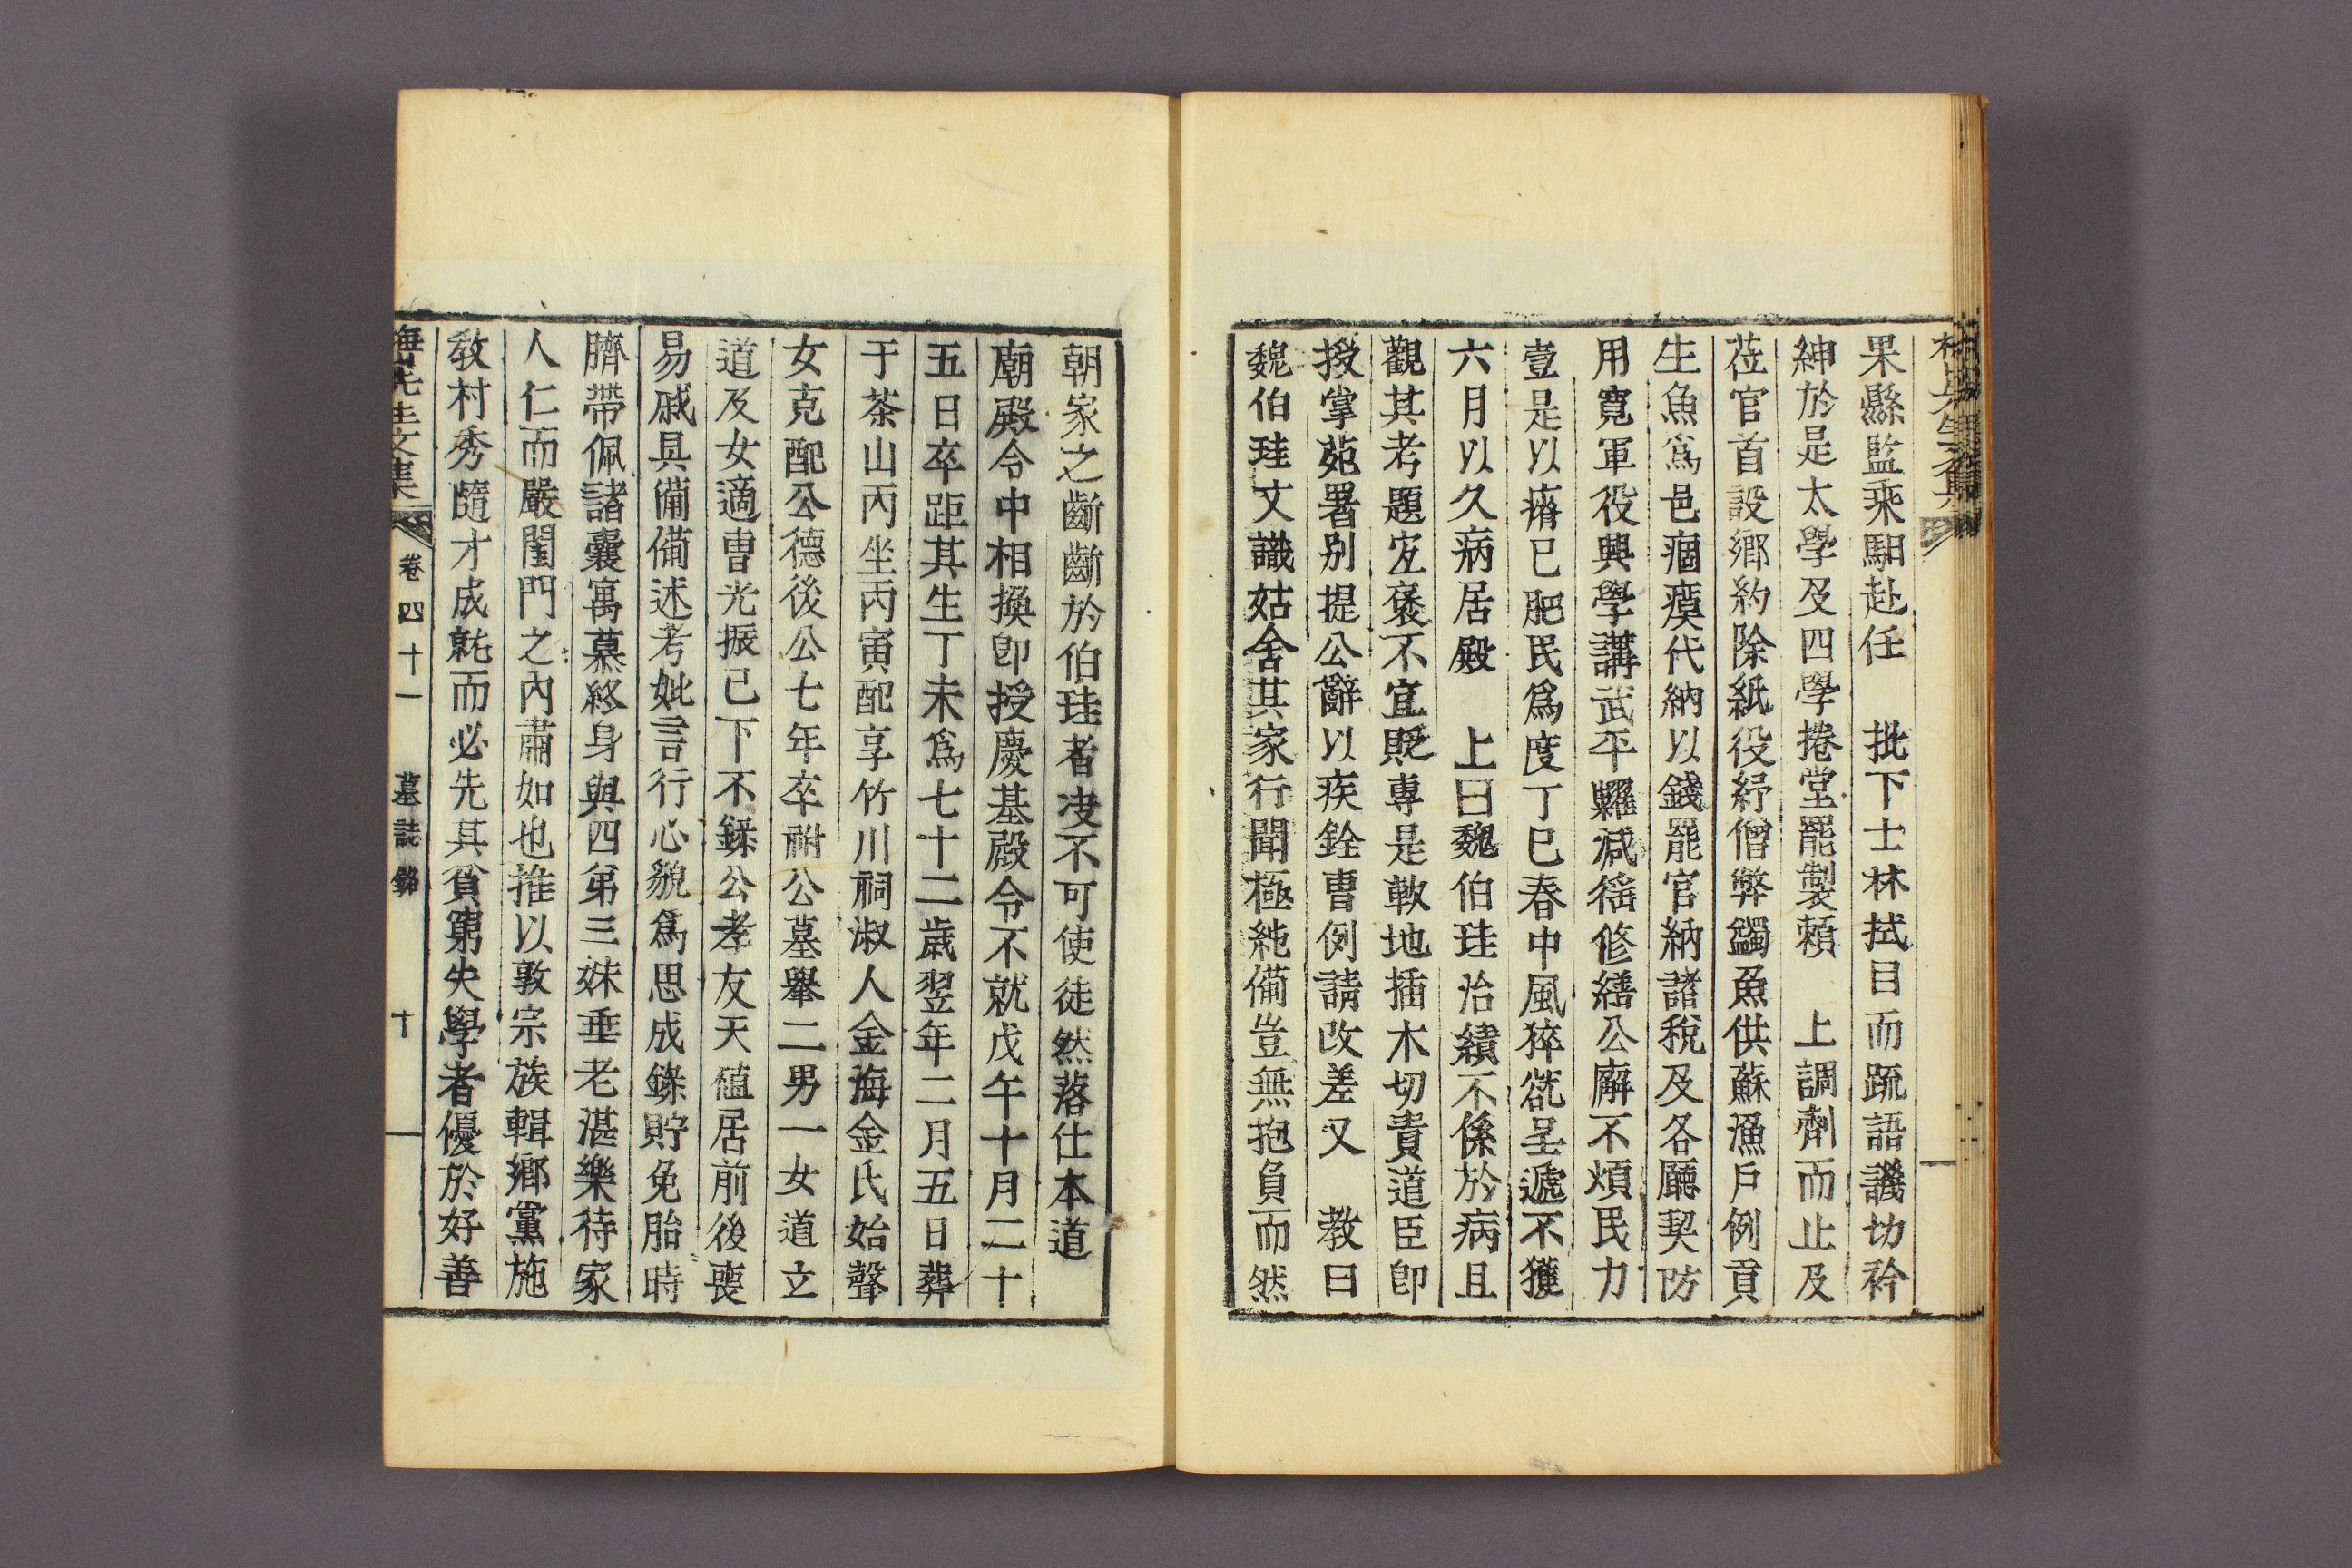 果縣監乘馹赴任　批下士林拭目而疏語譏切衿
紳於是太學及四學捲堂罷製賴　上調劑而止及
莅官首設鄉約除紙役紓僧弊蠲魚供蘇漁戶例貢
生魚爲邑痼瘼代納以錢罷官納諸稅及各廳契防
用寬軍役興學講武平糶減徭修繕公廨不煩民力
壹是以瘠已肥民爲度丁巳春中風猝㞃呈遞不獲
六月以久病居殿　上曰魏伯珪治績不係於病且
觀其考題宜褒不宜貶專是軟地插木切責道臣卽
授掌苑署別提公辭以疾銓曹例請改差又　教曰
魏伯珪文識姑舍其家行聞極純備豈無抱負而然
朝家之斷斷於伯珪者决不可使徒然落仕本道
廟殿令中相換卽授慶基殿令不就戊午十月二十
五日卒距其生丁未爲七十二歲翌年二月五日葬
于茶山丙坐丙寅配享竹川祠淑人金海金氏始聲
女克配公德後公七年卒祔公墓舉二男一女道立
道及女適曹光振已下不錄公孝友天値居前後喪
易戚具備備述考妣言行心貌爲思成錄貯免胎時
臍帶佩諸囊寓慕終身與四弟三妹垂老湛樂待家
人仁而嚴閨門之內肅如也推以敦宗族輯鄉黨施
教村秀隨才成就而必先其貧窮失學者優於好善
先生文集
卷四十一　墓誌銘　十